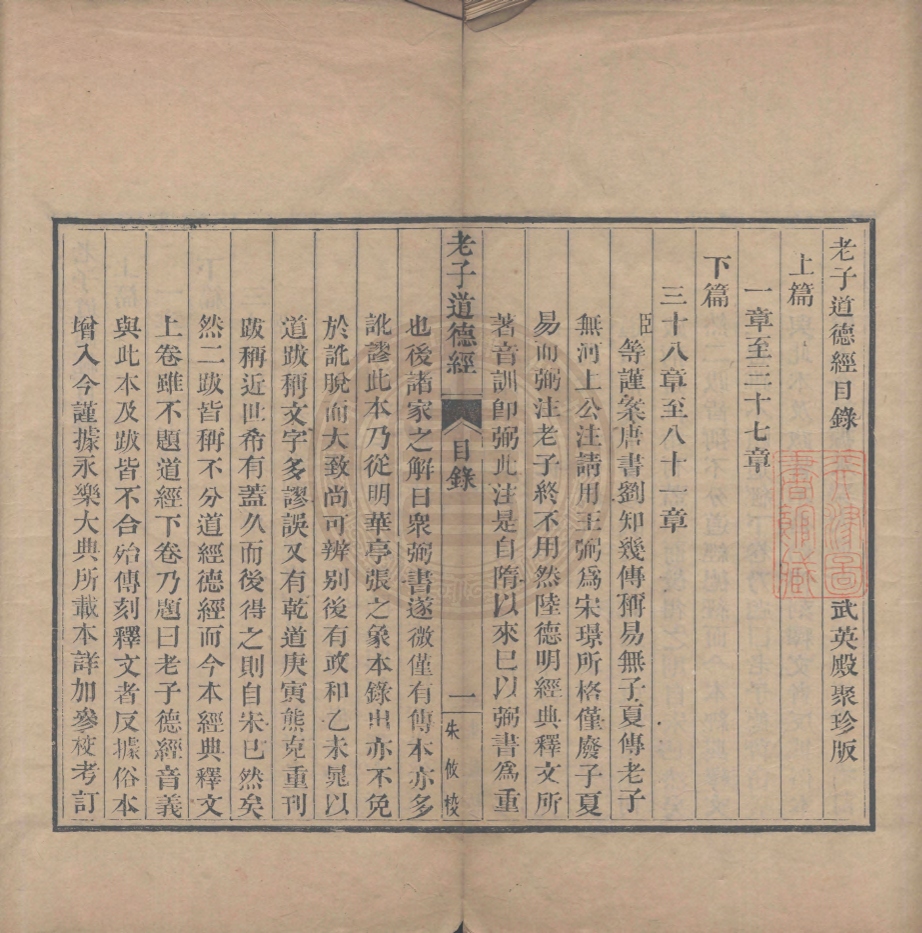 老子道德經目錄　武英殿聚珍版
上篇
一章至三十七章
下篇
三十八章至八十一章
臣等謹案唐書劉知幾傳稱易無子夏傳老子
無河上公注請用王弼爲宋璟所格僅廢子夏
易而弼注老子終不用然陸德明經典釋文所
著音訓卽弼此注是自隋以來已以弼書爲重
老子道德經　目錄　一　朱攸校
也後諸家之解日衆弼書遂微僅有傳本亦多
訛謬此本乃從明華亭張之象本錄出亦不免
於訛脫而大致尚可辨别後有政和乙未晁以
道跋稱文字多謬誤又有乾道庚寅熊克重刊
跋稱近世希有蓋久而後得之則自宋已然矣
然二跋皆稱不分道經德經而今本經典釋文
上卷雖不題道經下卷乃題曰老子德經音義
與此本及跋皆不合殆傳刻釋文者反據俗本
增入今謹據永樂大典所載本詳加參校考訂